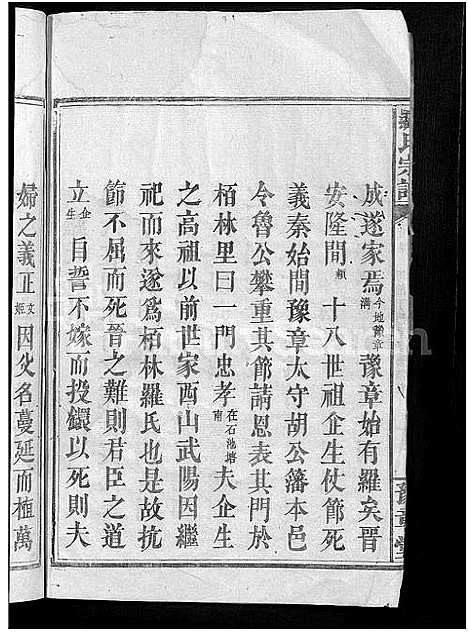 羅氏宗譜
城遂家焉今地豫章溝豫章始有羅矣晉
安隆間賴十八世祖企生仗節死
義秦始間豫章太守胡公藩本邑
令魯公攀重其節請恩表其門於
栢林里曰一門忠孝在石池塘南夫企生
之高祖以前世家酉山武陽因繼
祀而來遂爲栢林羅氏也是故抗
節不屈而死晉之難則君臣之道
立企生自誓不嫁而投繯以死則夫
婦之義正文姬因火名蔓延而植萬
豫章堂